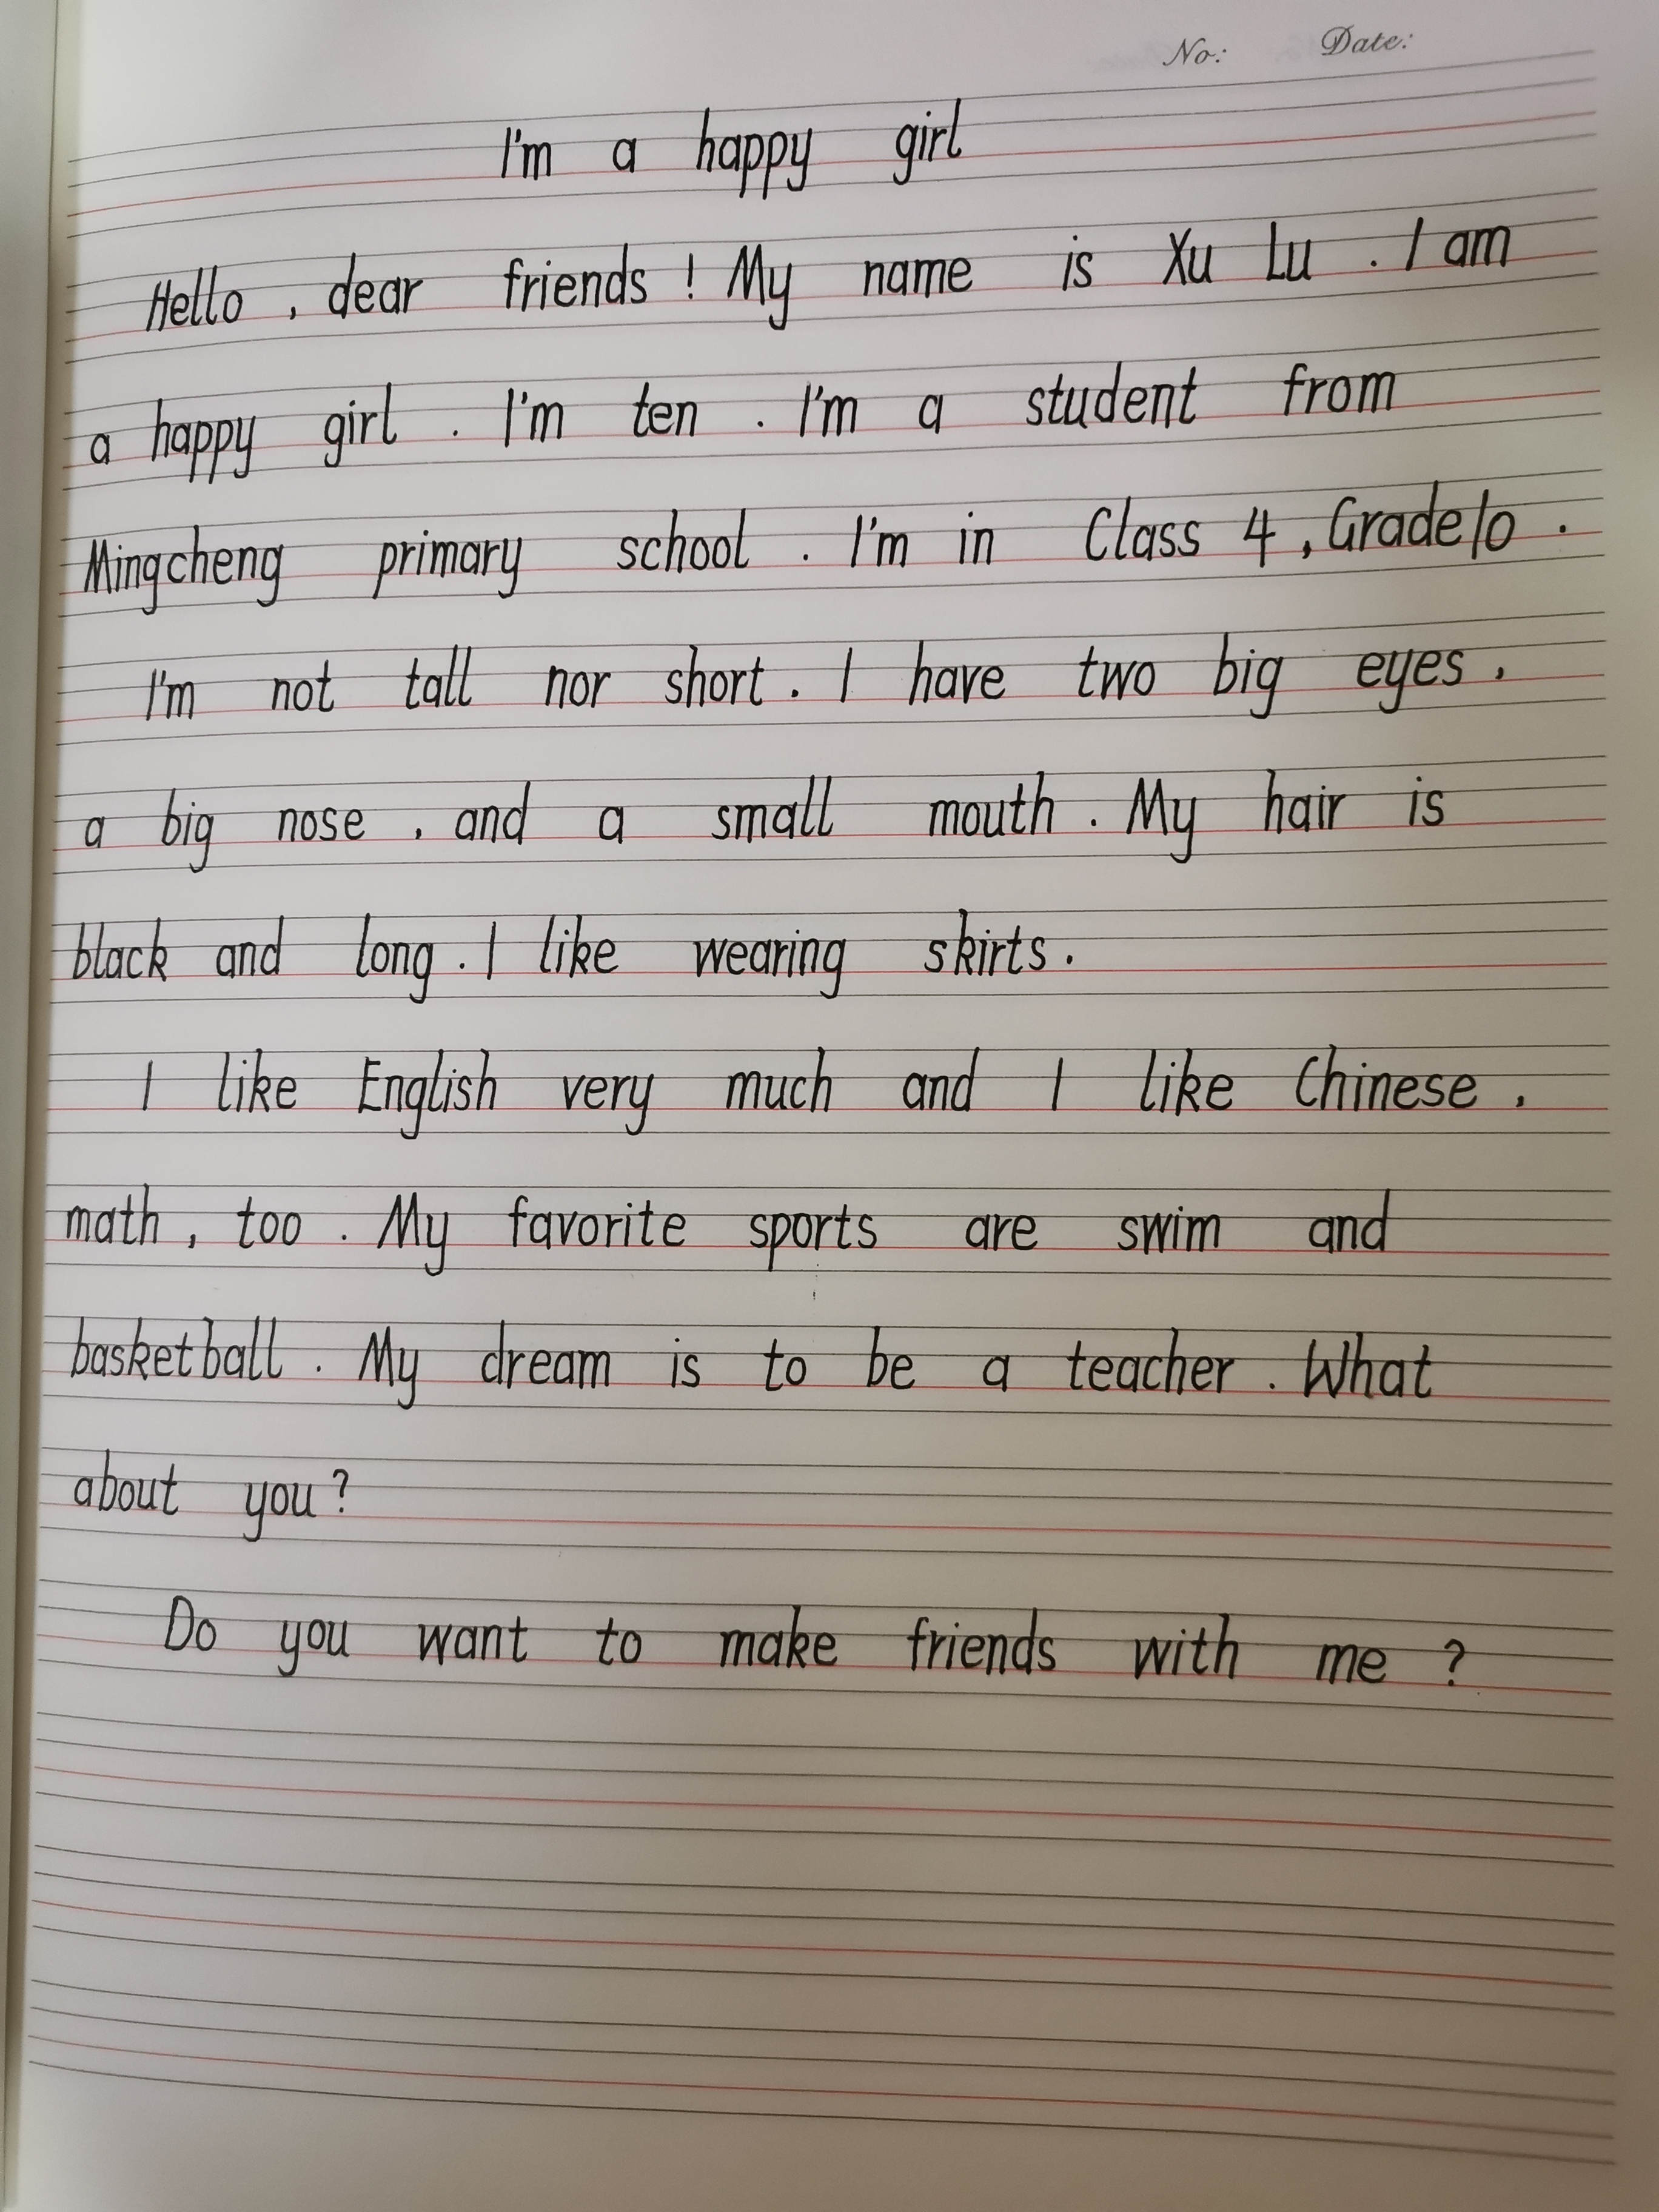 No: Date:
I'm a happy girl
Hello, dear friends! My name is Xu Lu. I am
a happy girl. I'm ten. I'm a student from
Mingcheng primary school. I'm in Class 4, Grade 10.
I'm not tall nor short. I have two big eyes,
a big nose, and a small mouth. My hair is
black and long. I like wearing skirts.
I like English very much and I like Chinese,
math, too. My favorite sports are swim and
basketball. My dream is to be a teacher. What
about you?
Do you want to make friends with me?